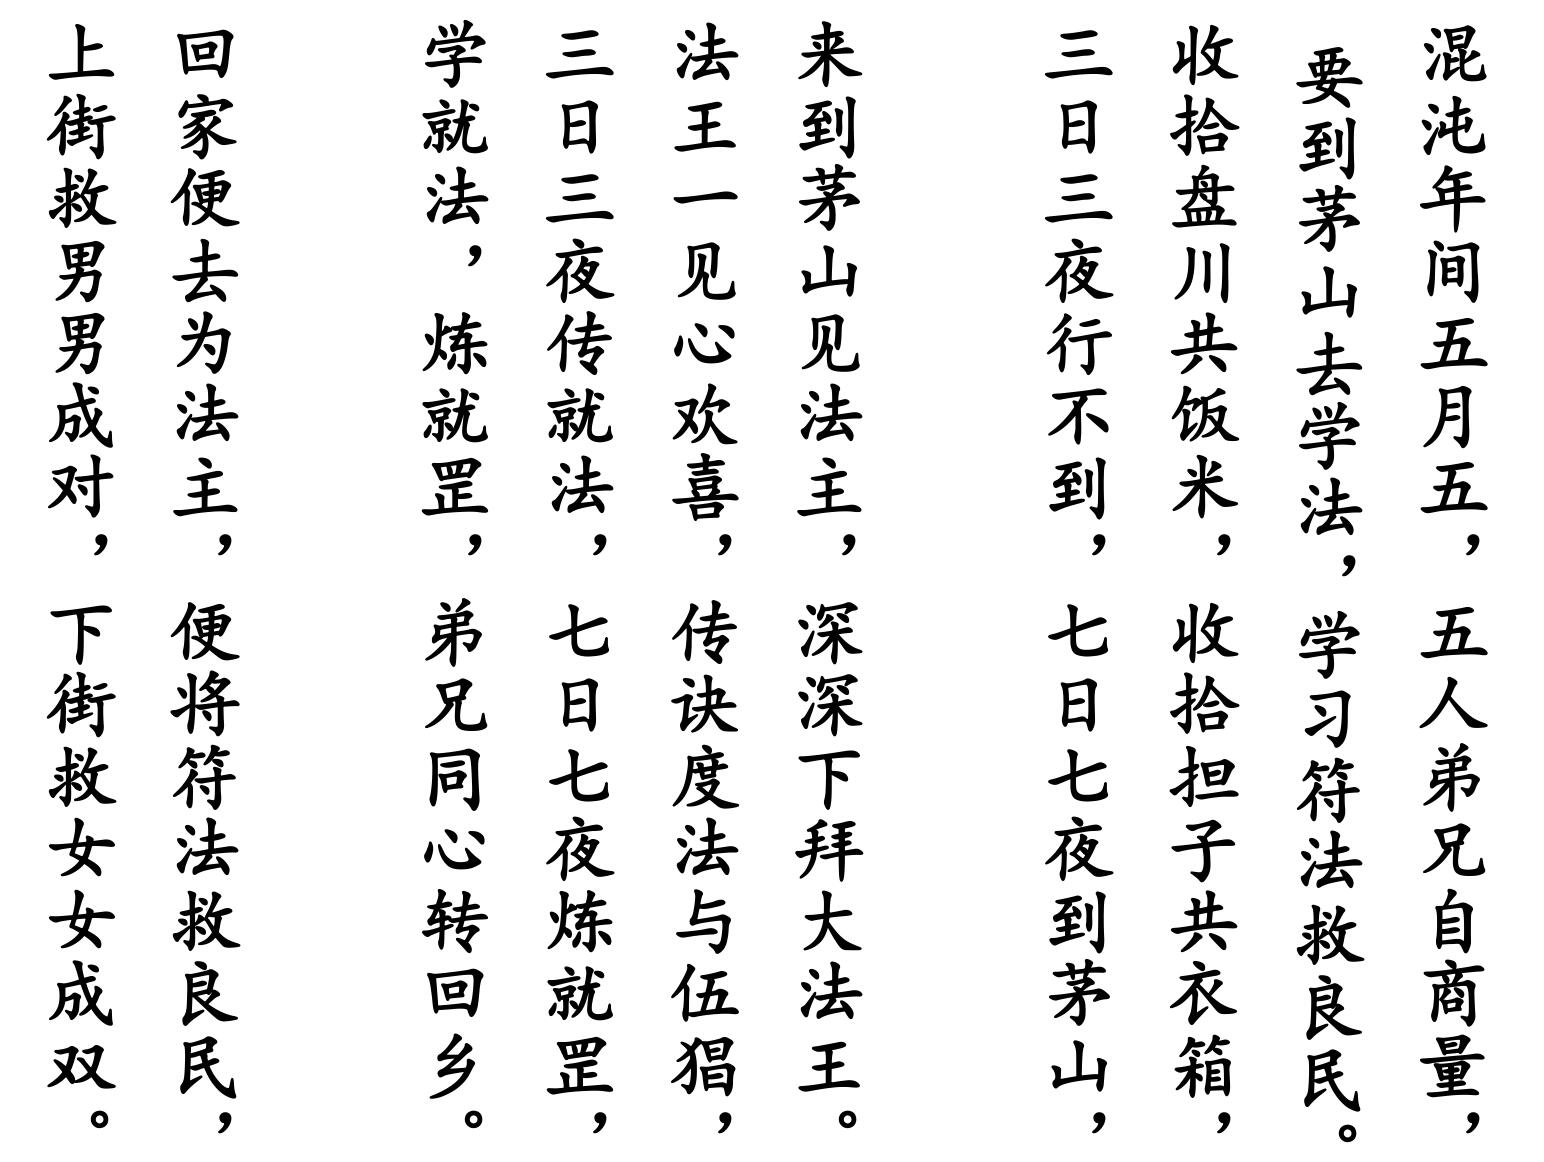 混沌年间五月五，五人弟兄自商量，
要到茅山去学法，学习符法救良民。
收拾盘川共饭米，收拾担子共衣箱，
三日三夜行不到，七日七夜到茅山，
来到茅山见法主，深深下拜大法王。
法王一见心欢喜，传诀度法与伍猖，
三日三夜传就法，七日七夜炼就罡，
学就法，炼就罡，弟兄同心转回乡。
回家便去为法主，便将符法救良民，
上街救男男成对，下街救女女成双。